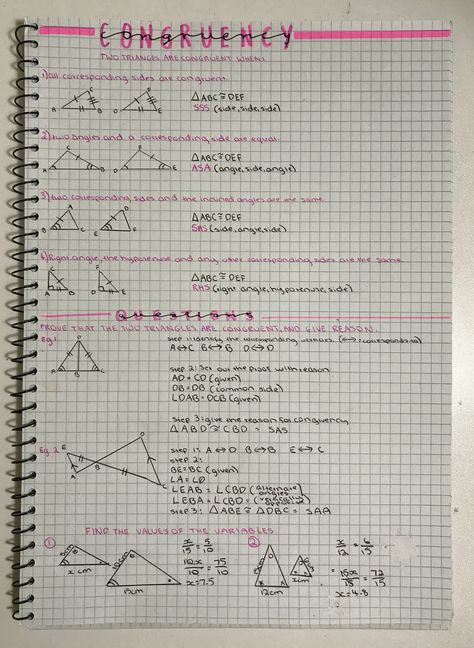 CONGRUENCY
congruency
TWO TRIANGLES ARE CONGRUENT WHEN:
1) all corresponding sides are congruent.
A B C D E F
△ABC ≅ DEF
SSS (side, side, side)
2) two angles and a corresponding side are equal.
A B C D E F
△ABC ≅ DEF
ASA (angle, side, angle)
3) two corresponding sides and the included angles are the same.
A B C D E F
△ABC ≅ DEF
SAS (side, angle, side)
4) Right angle, the hypotenuse and any other corresponding sides are the same.
A B C D E F
△ABC ≅ DEF
RHS (right angle, hypotenuse, side)
QUESTIONS
PROVE THAT THE TWO TRIANGLES ARE CONGRUENT, AND GIVE REASON.
Eg 1
step 1: identify the corresponding vertices. (↔ = corresponding)
A↔C B↔B D↔D
step 2: Set out the proof with reason
AD = CD (given)
DB = DB (common side)
∠DAB = DCB (given)
step 3: give the reason for congruency
△ABD ≅ CBD = SAS
Eg 2
E A B D C
step 1: A↔D B↔B E↔C
step 2:
BE = BC (given)
∠A = ∠D
∠EAB = ∠CBD (alternate angles)
∠EBA = ∠CBD (vertically opposite)
step 3: △ABE ≅ △DBC = SAA
FIND THE VALUES OF THE VARIABLES
1
5cm
x cm
10cm
15cm
x/15 = 5/10
10x/10 = 75/10
x = 7.5
2
12cm
x cm
x/12 = 6/15
= 15x/15 = 72/15
x = 4.8